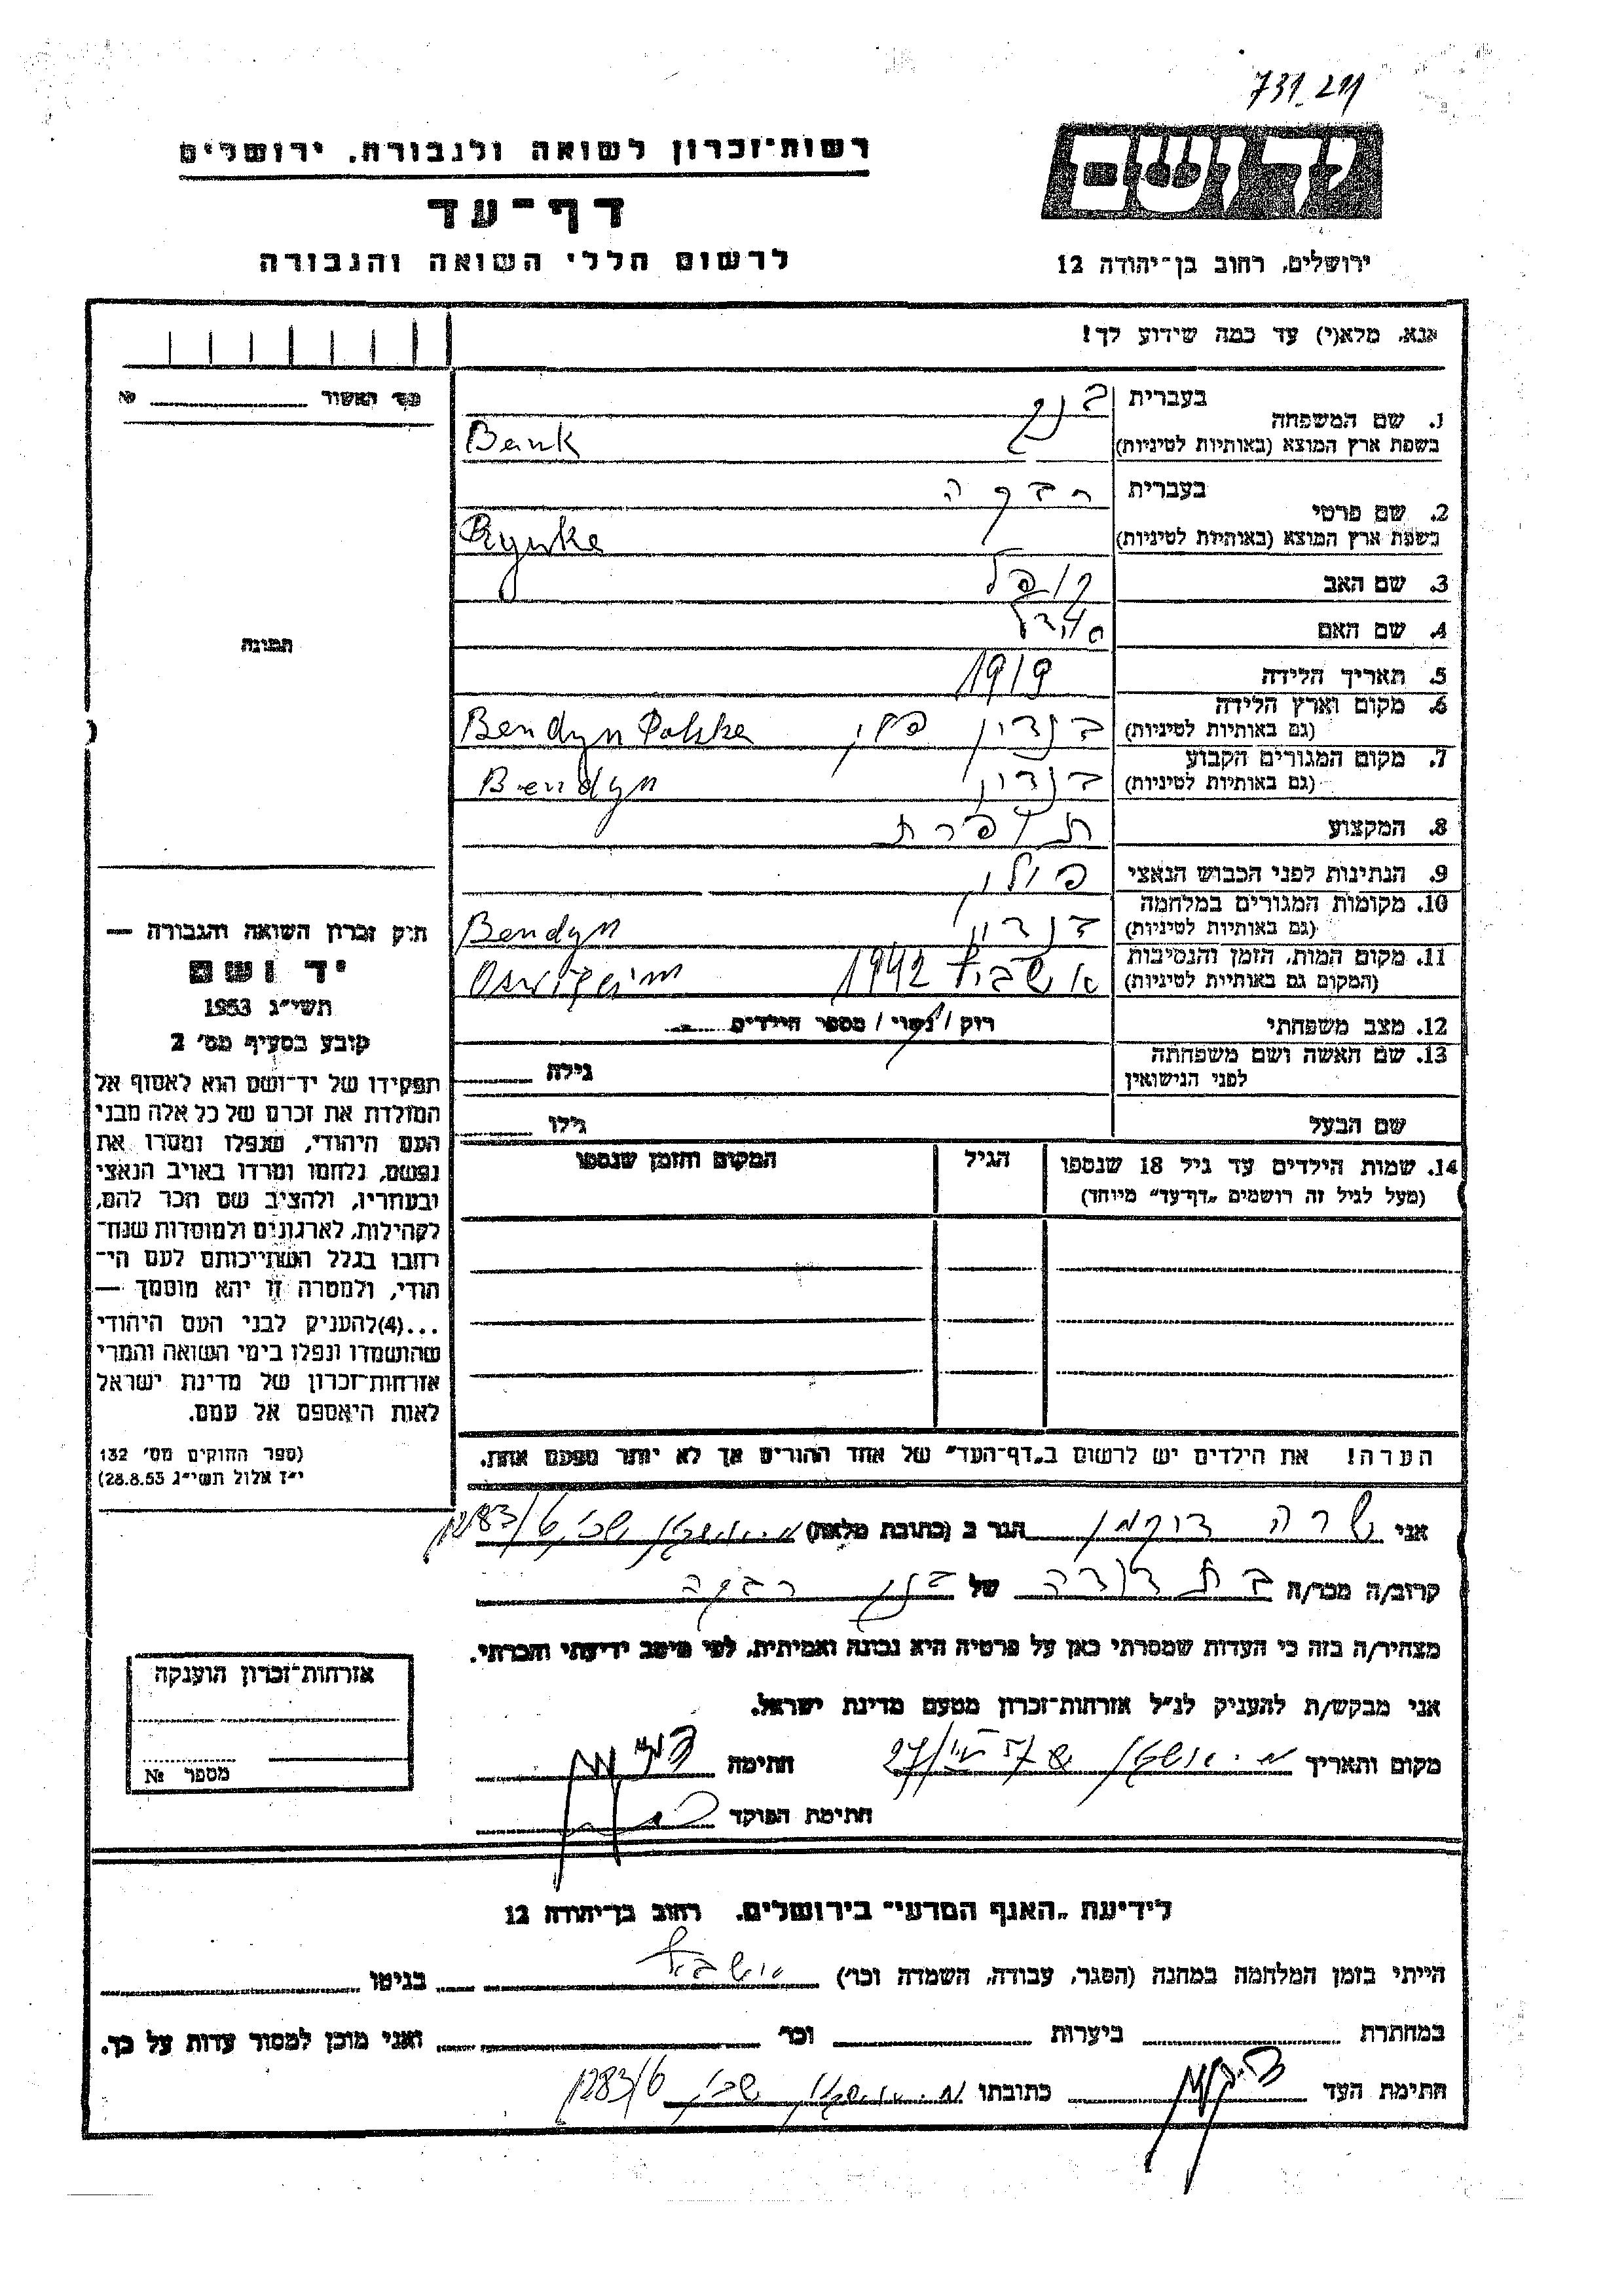 רשות־זכרון לשואה ולגבורה. ירושלים
יד ושם
דף־עד
לרשום חללי השואה והגבורה
ירושלים, רחוב בן־יהודה 12
אנא, מלא(י) עד כמה שידוע לך!
מס׳ האשור №
1. שם המשפחה בעברית בנק
בשפת ארץ המוצא (באותיות לטיניות) Bank
2. שם פרטי בעברית רבקה
בשפת ארץ המוצא (באותיות לטיניות) Rywka
3. שם האב
4. שם האם
5. תאריך הלידה 1919
6. מקום וארץ הלידה (גם באותיות לטיניות) בנדין פולין Bendyn Polska
7. מקום המגורים הקבוע (גם באותיות לטיניות) בנדין Bendyn
8. המקצוע תופרת
9. הנתינות לפני הכבוש הנאצי פולין
10. מקומות המגורים במלחמה (גם באותיות לטיניות) בנדין Bendyn
11. מקום המות, הזמן והנסיבות (המקום גם באותיות לטיניות) אושביץ 1942
12. מצב משפחתי רוק / נשוי / מספר הילדים
13. שם האשה ושם משפחתה לפני הנישואין גילה
שם הבעל גילו
14. שמות הילדים עד גיל 18 שנספו
(מעל לגיל זה רושמים „דף־עד” מיוחד)
הגיל
המקום והזמן שנספו
הערה! את הילדים יש לרשום ב„דף־העד” של אחד ההורים אך לא יותר מפעם אחת.
תמונה
חוק זכרון השואה והגבורה —
יד ושם
תשי״ג 1953
קובע בסעיף מס׳ 2
תפקידו של יד־ושם הוא לאסוף אל
המולדת את זכרם של כל אלה מבני
העם היהודי, שנפלו ומסרו את
נפשם, נלחמו ומרדו באויב הנאצי
ובעוזריו, ולהציב שם וזכר להם,
לקהילות, לארגונים ולמוסדות שנח־
רחבו בגלל השתייכותם לעם הי־
הודי, ולמטרה זו יהא מוסמך —
...(4)להעניק לבני העם היהודי
שהושמדו ונפלו בימי השואה והמרי
אזרחות־זכרון של מדינת ישראל
לאות היאספם אל עמם.
(ספר החוקים מס׳ 132
י״ז אלול תשי״ג 28.8.53)
אני שרה הגר ב (כתובת מלאה) 1283/6
קרוב/ה מכר/ה בת דודה של בנק רבקה
מצהיר/ה בזה כי העדות שמסרתי כאן על פרטיה היא נכונה ואמיתית, לפי מיטב ידיעתי והכרתי.
אני מבקש/ת להעניק לנ״ל אזרחות־זכרון מטעם מדינת ישראל.
מקום ותאריך חתימה
חתימת הפוקד
אזרחות־זכרון הוענקה
מספר №
לידיעת „האגף המדעי” בירושלים. רחוב בן־יהודה 12
הייתי בזמן המלחמה במחנה (הסגר, עבודה, השמדה וכו׳) אושביץ בגיטו
במחתרת ביערות וכו׳ ואני מוכן למסור עדות על כך.
חתימת העד כתובתו 1283/6